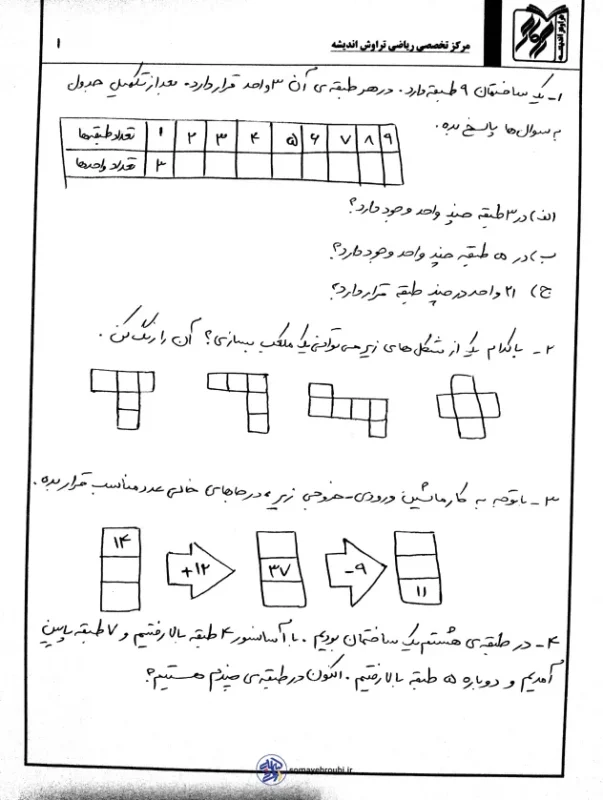 مرکز تخصصی ریاضی تراوش اندیشه
۱
تراوش اندیشه
۱- یک ساختمان ۹ طبقه دارد. در هر طبقه‌ی آن ۳ واحد قرار دارد. بعد از تکمیل جدول
به سوال‌ها پاسخ بده.
تعداد طبقه‌ها ۱ ۲ ۳ ۴ ۵ ۶ ۷ ۸ ۹
تعداد واحدها ۳
الف) در ۳ طبقه چند واحد وجود دارد؟
ب) در ۵ طبقه چند واحد وجود دارد؟
ج) ۲۱ واحد در چند طبقه قرار دارد؟
۲- با کدام یک از شکل‌های زیر می‌توانی یک مکعب بسازی؟ آن را رنگ کن.
۳- با توجه به کار ماشین ورودی-خروجی زیر، در جاهای خالی عدد مناسب قرار بده.
۱۴ +۱۲ ۳۷ -۹ ۱۱
۴- در طبقه‌ی هشتم یک ساختمان بودیم. با آسانسور ۴ طبقه بالا رفتیم و ۷ طبقه پایین
آمدیم و دوباره ۵ طبقه بالا رفتیم. اکنون در طبقه‌ی چندم هستیم؟
somayehroubi.ir